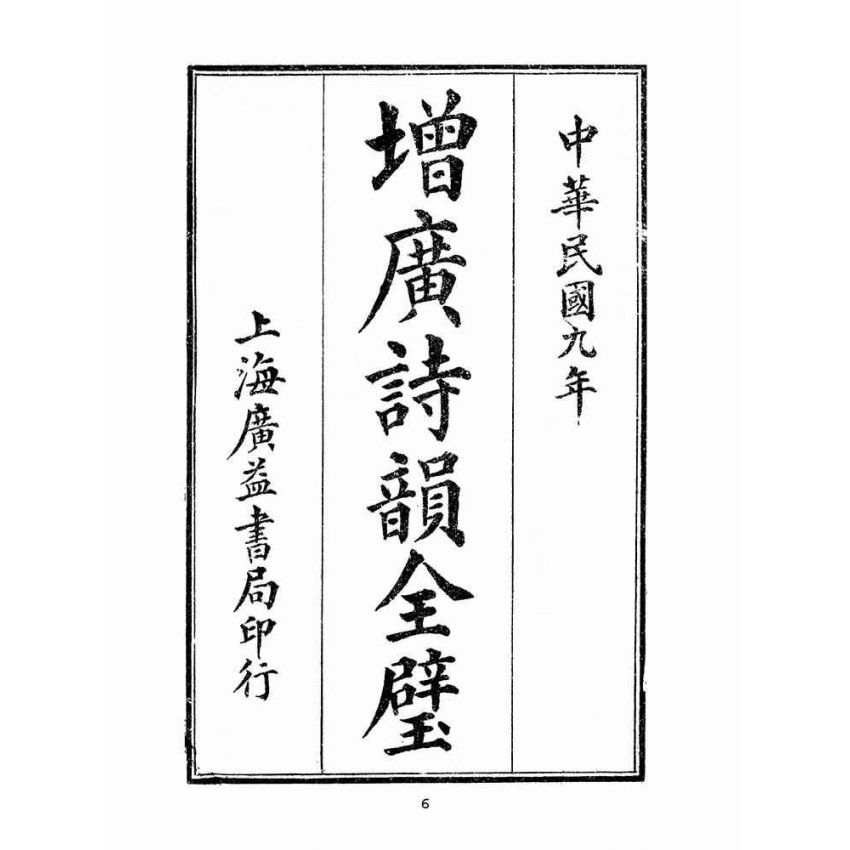 中華民國九年
增廣詩韻全璧
上海廣益書局印行
6